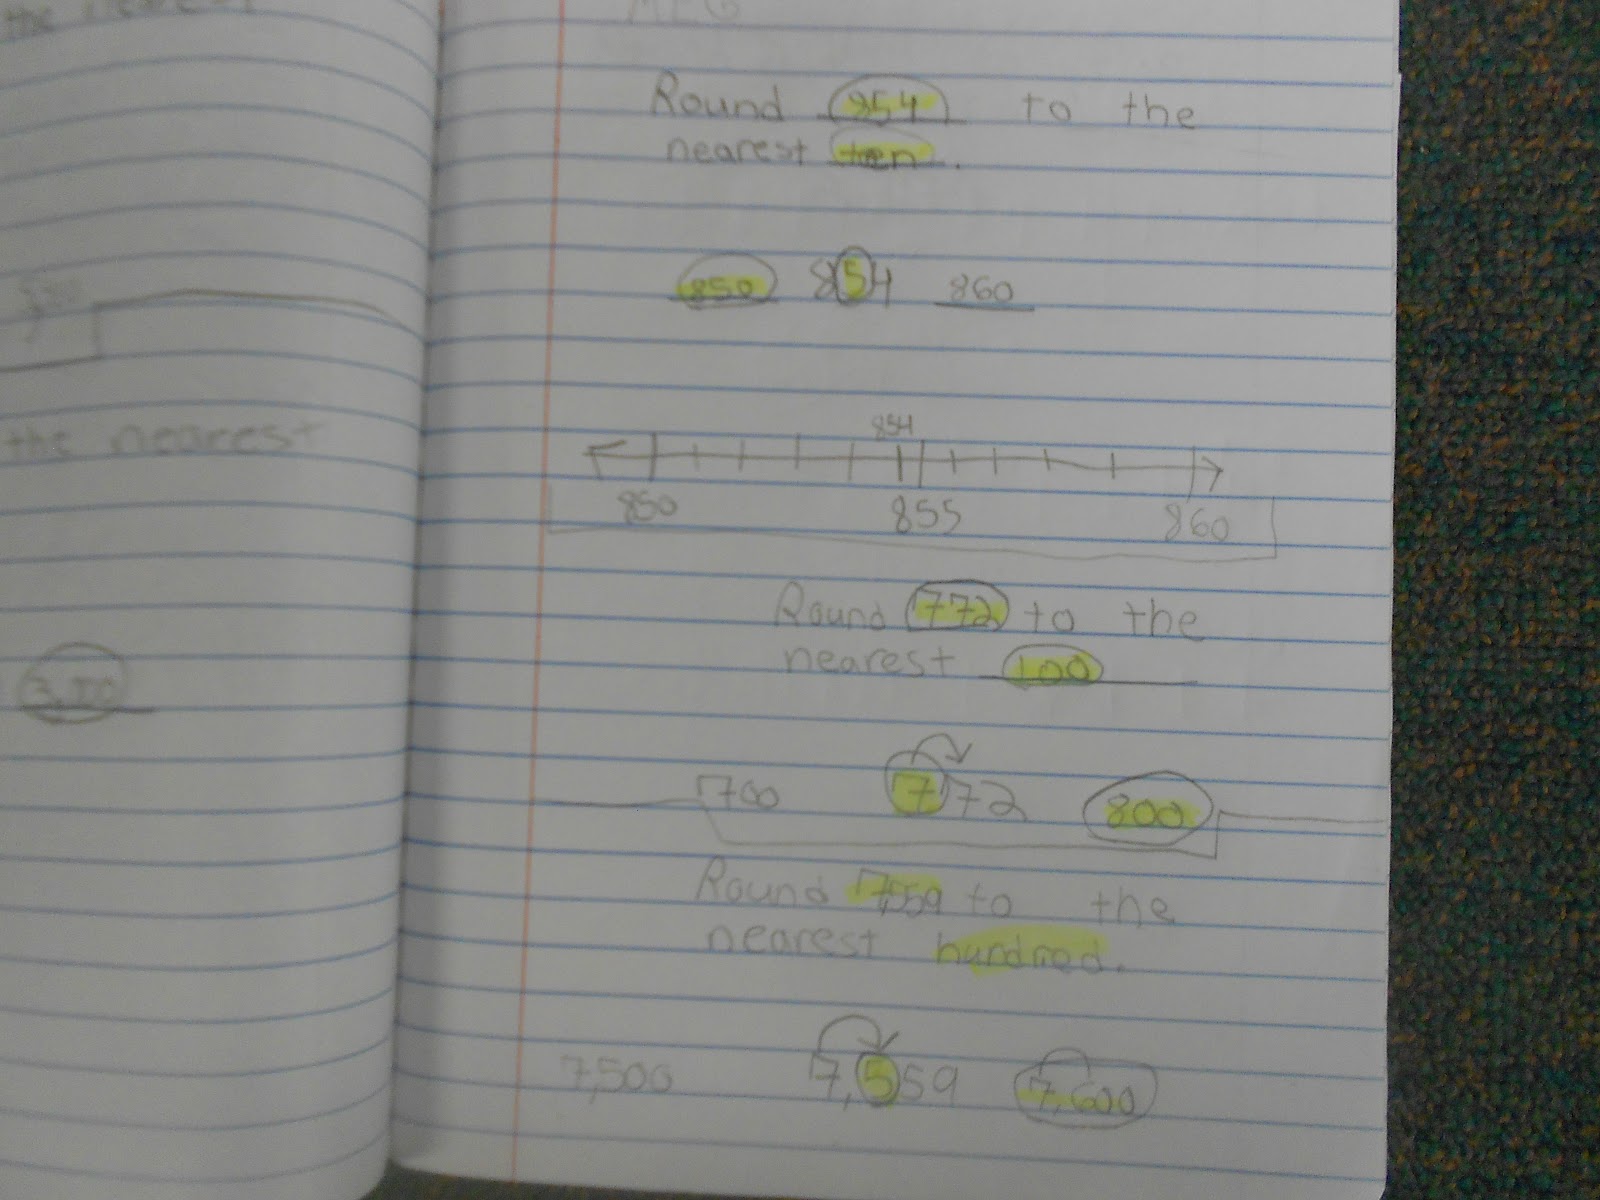 the nearest
Round 854 to the
nearest ten.
850 854 860
854
850 855 860
the nearest
Round 772 to the
nearest 100
700 772 800
Round 7,559 to the
nearest hundred.
7,500 7,559 7,600